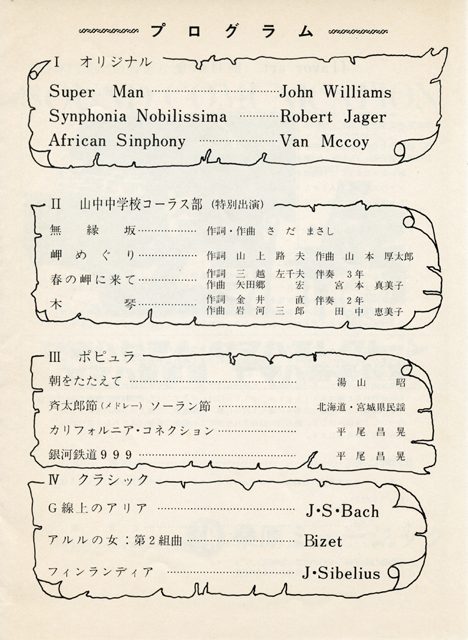 プログラム
I オリジナル
Super Man ……… John Williams
Synphonia Nobilissima ……… Robert Jager
African Sinphony ……… Van Mccoy
II 山中中学校コーラス部 (特別出演)
無縁坂 ……… 作詞・作曲 さだ まさし
岬めぐり ……… 作詞 山上路夫 作曲 山本厚太郎
春の岬に来て ……… 作詞 三越左千夫 伴奏 3年
作曲 矢田郷 宏 宮本真美子
木琴 ……… 作詞 金井 直 伴奏 2年
作曲 岩河三郎 田中恵美子
III ポピュラ
朝をたたえて ……… 湯山 昭
斉太郎節 (メドレー) ソーラン節 ……… 北海道・宮城県民謡
カリフォルニア・コネクション ……… 平尾昌晃
銀河鉄道999 ……… 平尾昌晃
IV クラシック
G線上のアリア ……… J・S・Bach
アルルの女:第2組曲 ……… Bizet
フィンランディア ……… J・Sibelius